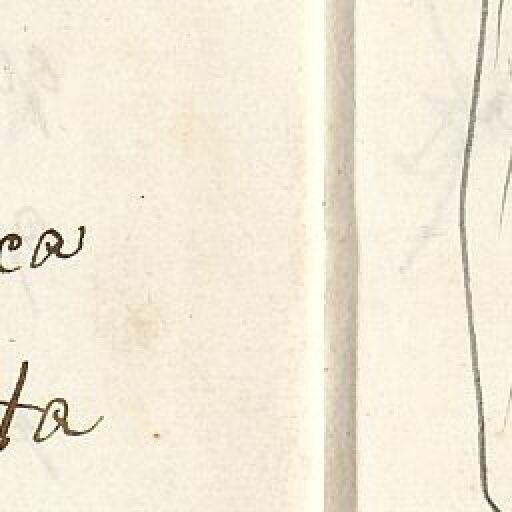 ca
ta